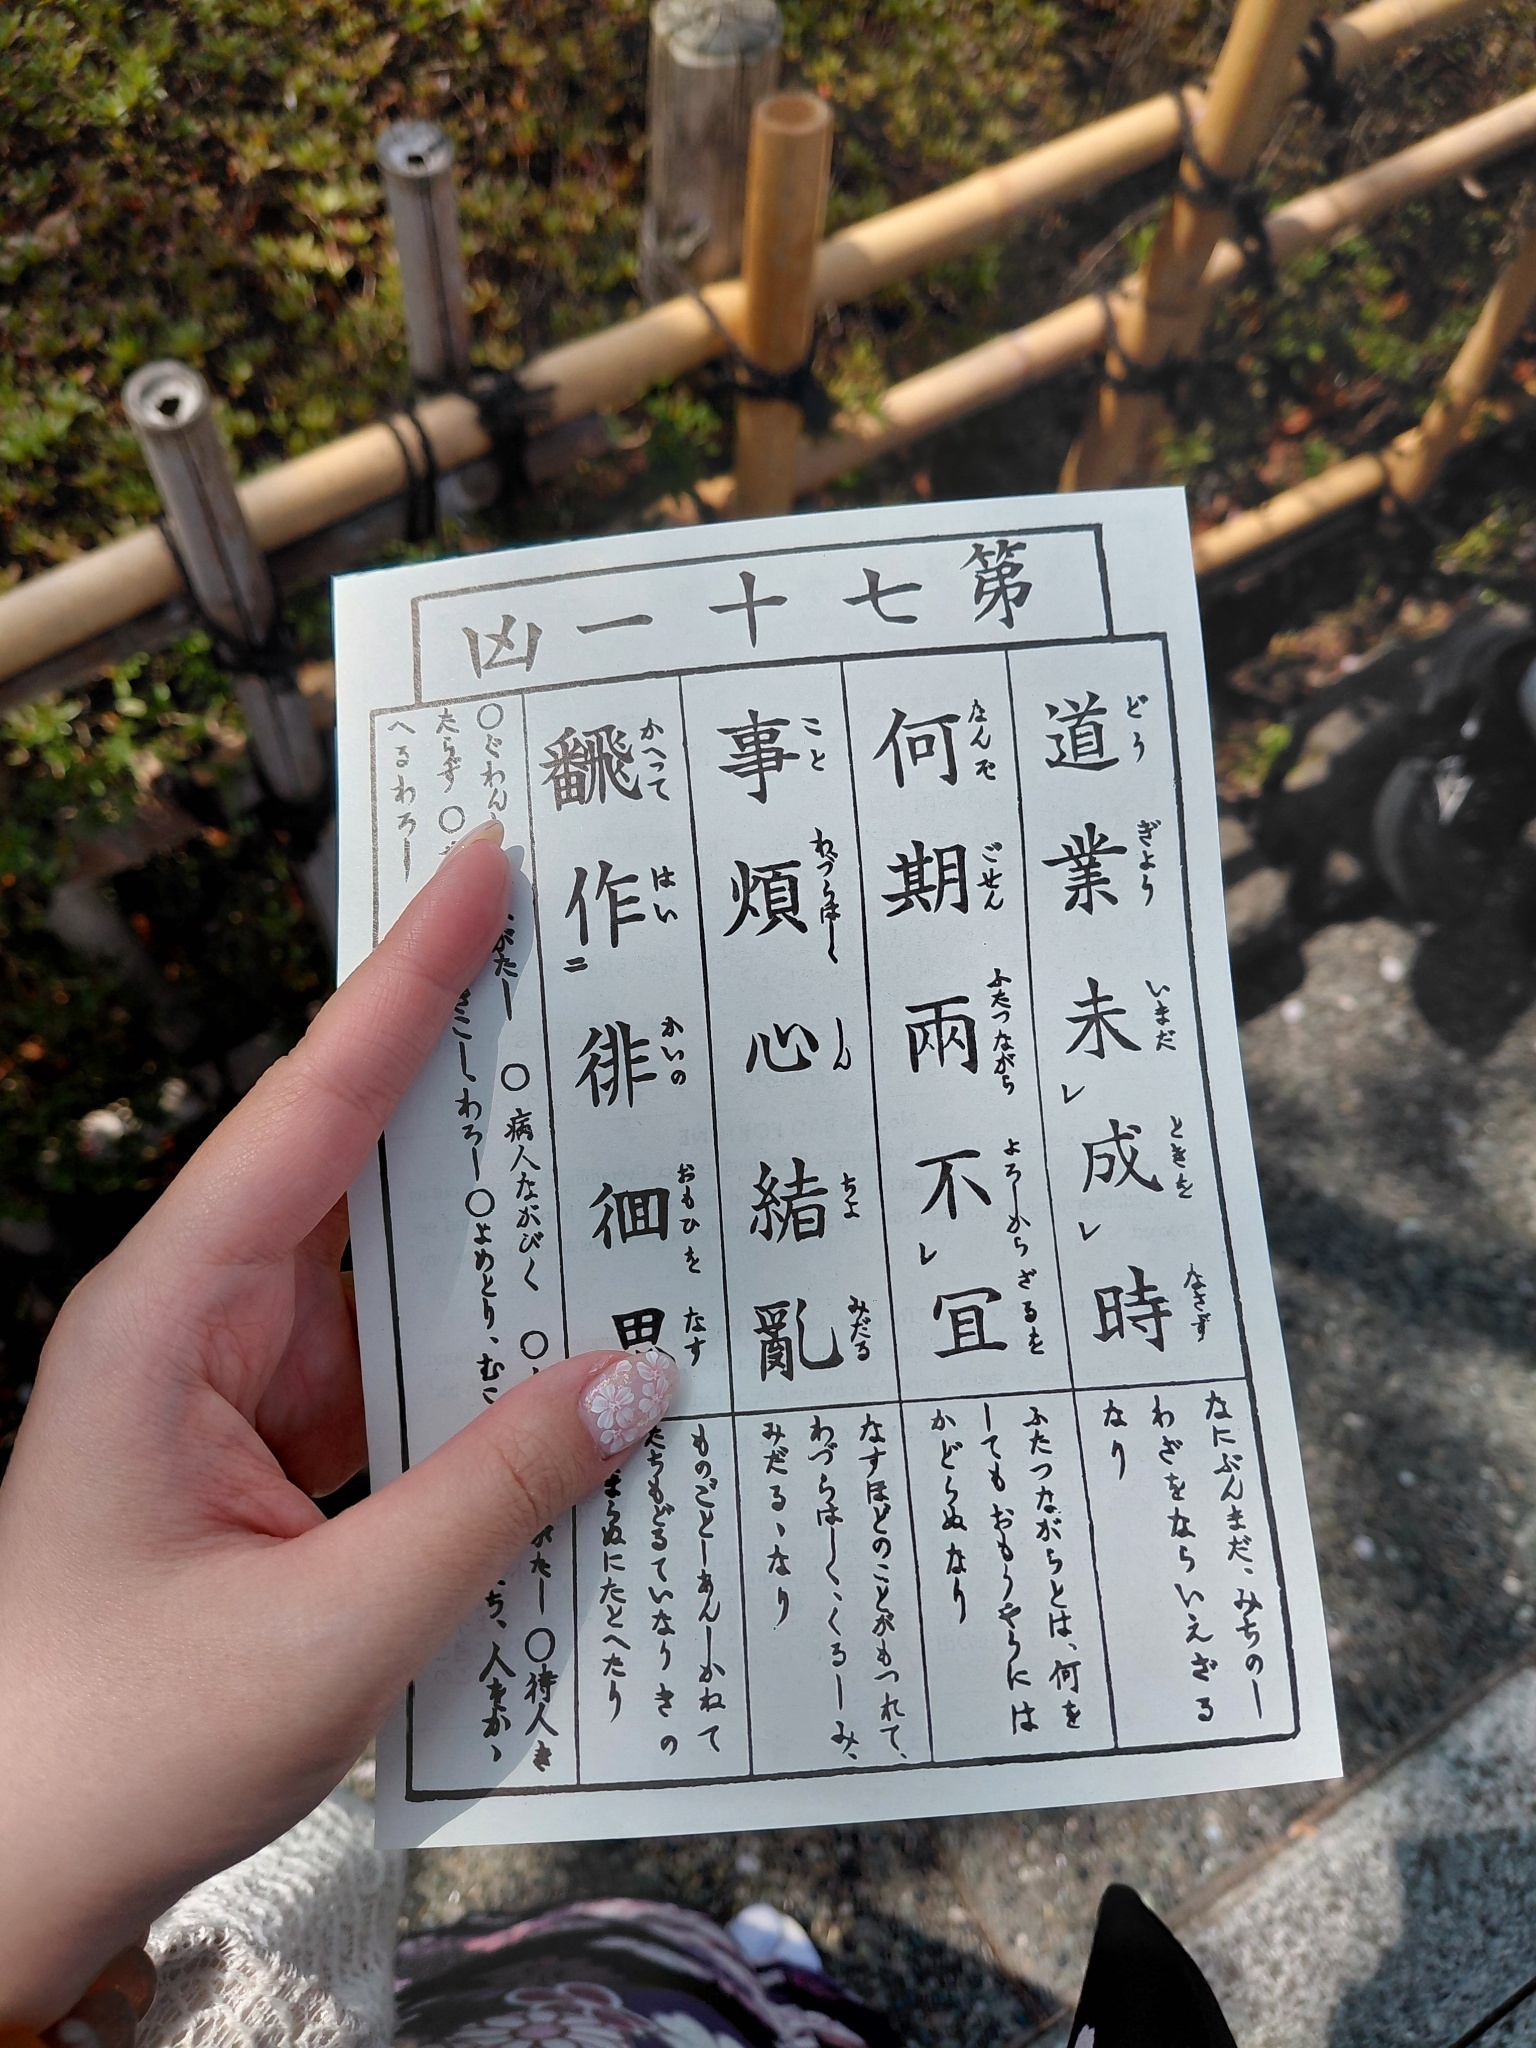 第七十一凶
道業未レ成レ時
どう ぎよう いまだ ときを なさず
何期兩不レ宜
なんぞ ごせん ふたつながら よろしからざるを
事煩心緒亂
こと わづらはしく しん ちよ みだる
翻作二徘徊思
かへつて はい かいの おもひを なす
なにぶんまだ、みちのし
わざをならいえざる
なり
ふたつながらとは、何を
してもおもうやうには
かどらぬなり
なすほどのことがもつれて、
わづらはしく、くるしみ、
みだるゝなり
ものごとしあんしかねて
たちもどるていなりきの
まらぬにたとへたり
○ぐわん
がたし
○病人ながびく
○
がたし
○待人き
たらず
○
きこしわろし
○よめとり、むこ
ち、人をかゝ
へるわろし